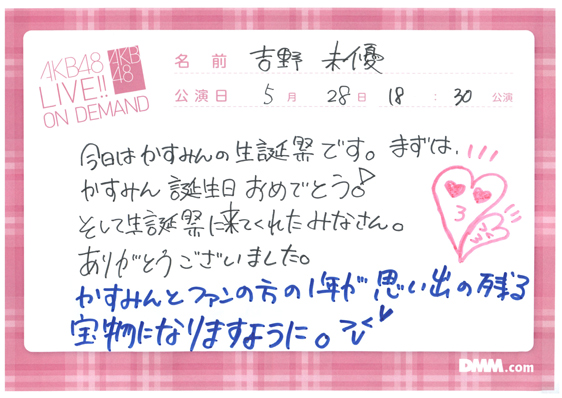 AKB48
LIVE!!
ON DEMAND
AKB
48
名前 吉野 未優
公演日 5月 28日 18:30 公演
今日はかすみんの生誕祭です。まずは、
かすみん誕生日おめでとう♪
そして生誕祭に来てくれたみなさん。
ありがとうございました。
かすみんとファンの方の1年が思い出の残る
宝物になりますように。
DMM.com